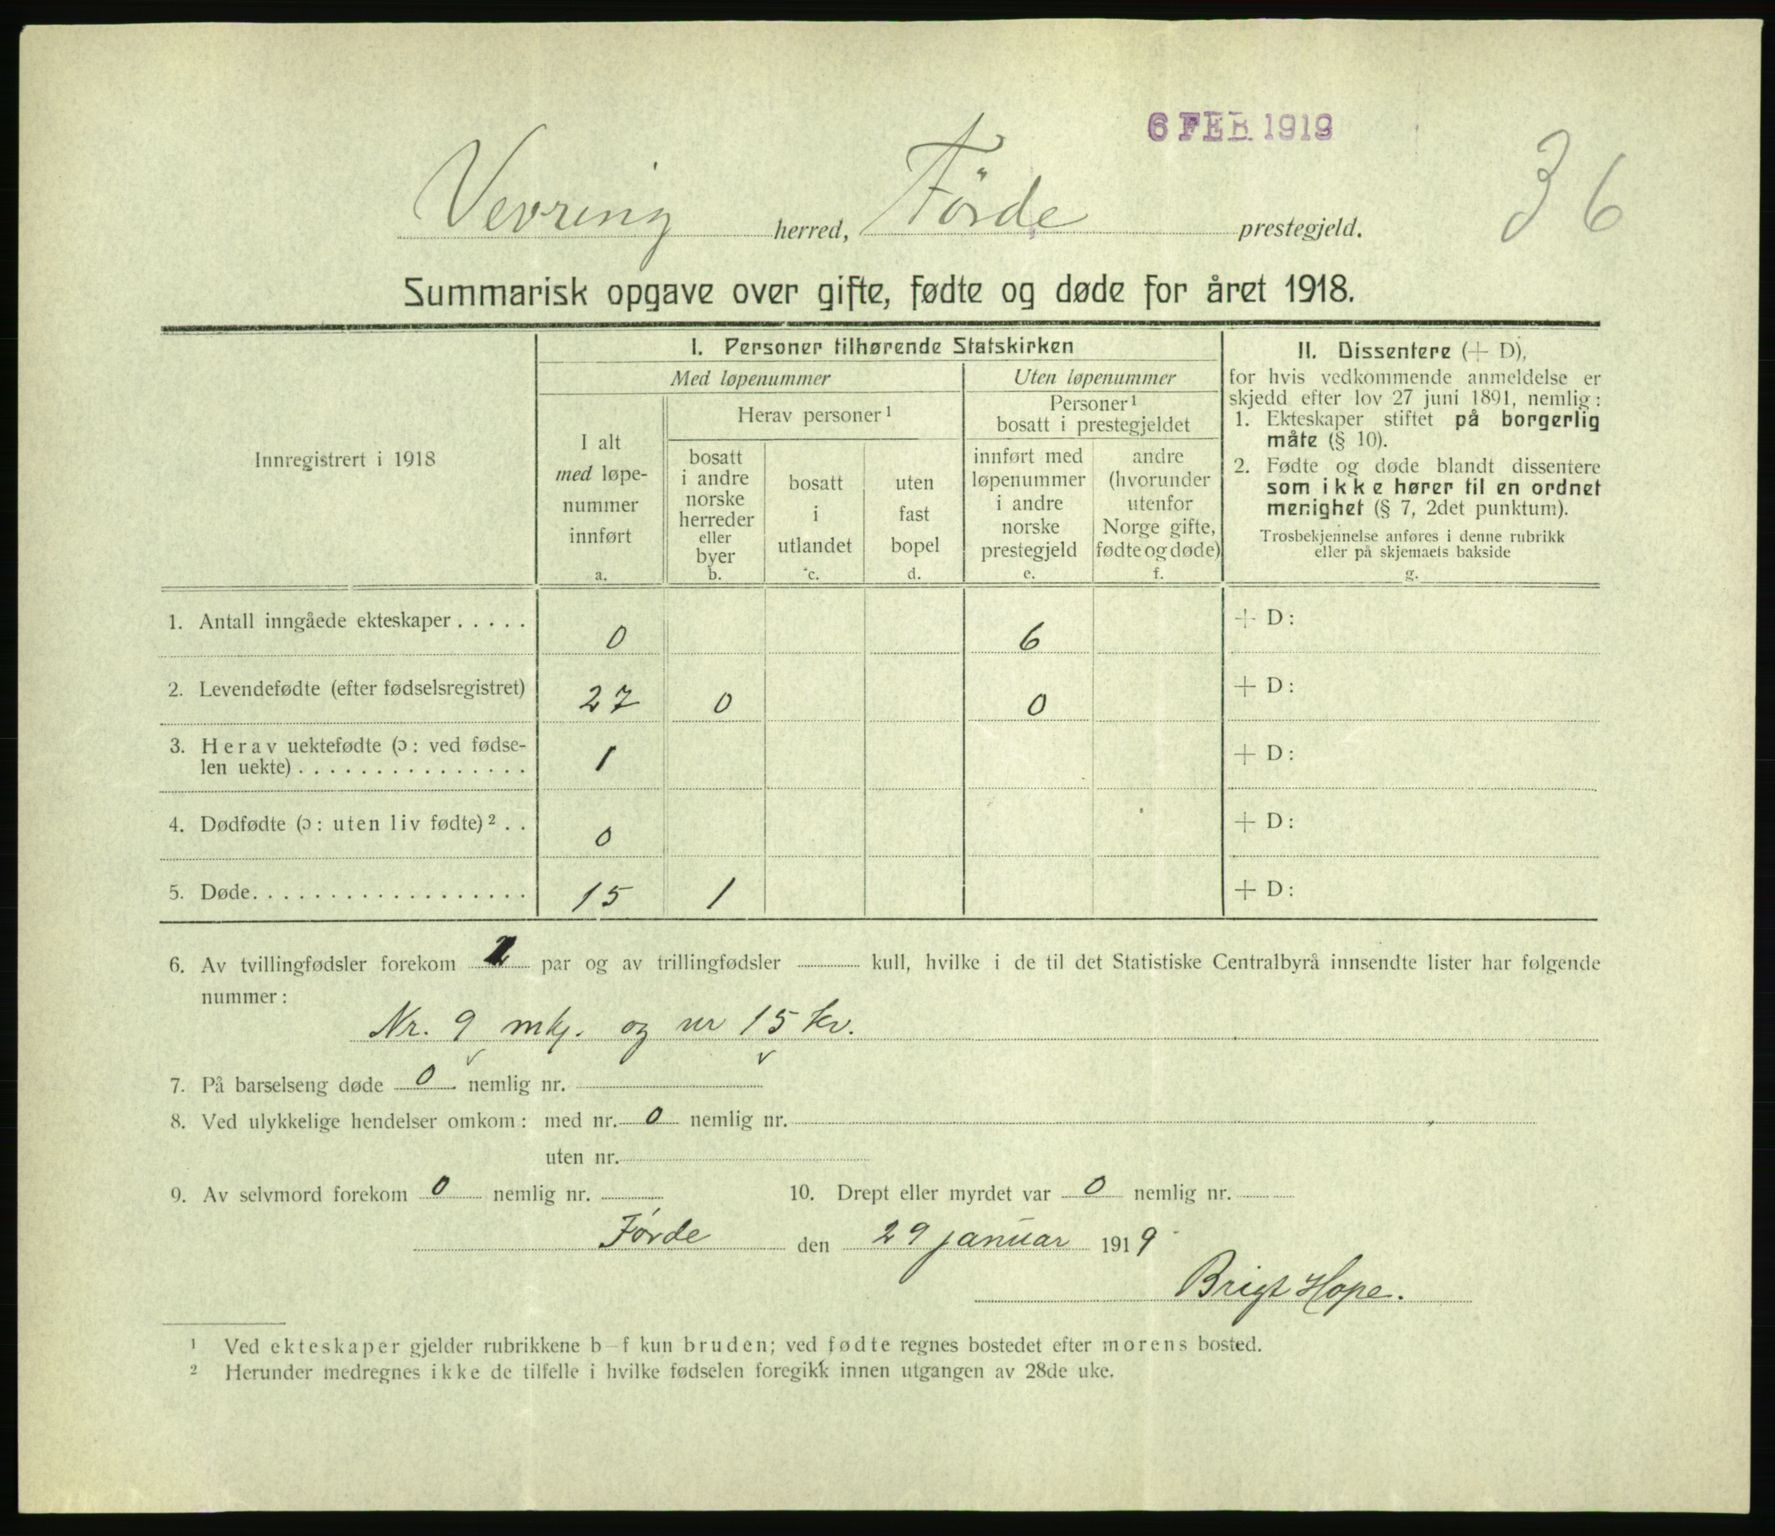 6 FEB 1919
36
Vevring herred, Førde prestegjeld.
Summarisk opgave over gifte, fødte og døde for året 1918.
Innregistrert i 1918
I. Personer tilhørende Statskirken
Med løpenummer
Uten løpenummer
I alt
med løpe-
nummer
innført
a.
Herav personer¹
bosatt
i andre
norske
herreder
eller
byer
b.
bosatt
i
utlandet
c.
uten
fast
bopel
d.
Personer¹
bosatt i prestegjeldet
innført med
løpenummer
i andre
norske
prestegjeld
e.
andre
(hvorunder
utenfor
Norge gifte,
fødte og døde)
f.
II. Dissentere (+ D),
for hvis vedkommende anmeldelse er
skjedd efter lov 27 juni 1891, nemlig:
1. Ekteskaper stiftet på borgerlig
måte (§ 10).
2. Fødte og døde blandt dissentere
som ikke hører til en ordnet
menighet (§ 7, 2det punktum).
Trosbekjennelse anføres i denne rubrikk
eller på skjemaets bakside
g.
1. Antall inngåede ekteskaper..... 0 6 + D:
2. Levendefødte (efter fødselsregistret) 27 0 0 + D:
3. Herav uektefødte (ɔ: ved fødse-
len uekte)............... 1 + D:
4. Dødfødte (ɔ: uten liv fødte)².. 0 + D:
5. Døde.................. 15 1 + D:
6. Av tvillingfødsler forekom par og av trillingfødsler kull, hvilke i de til det Statistiske Centralbyrå innsendte lister har følgende
nummer:
Nr. 9 mkj. og nr 15 kv.
7. På barselseng døde 0 nemlig nr.
8. Ved ulykkelige hendelser omkom: med nr. 0 nemlig nr.
uten nr.
9. Av selvmord forekom 0 nemlig nr. 10. Drept eller myrdet var 0 nemlig nr.
Førde den 29 januar 1919
Brigt Hope.
¹ Ved ekteskaper gjelder rubrikkene b-f kun bruden; ved fødte regnes bostedet efter morens bosted.
² Herunder medregnes ikke de tilfelle i hvilke fødselen foregikk innen utgangen av 28de uke.